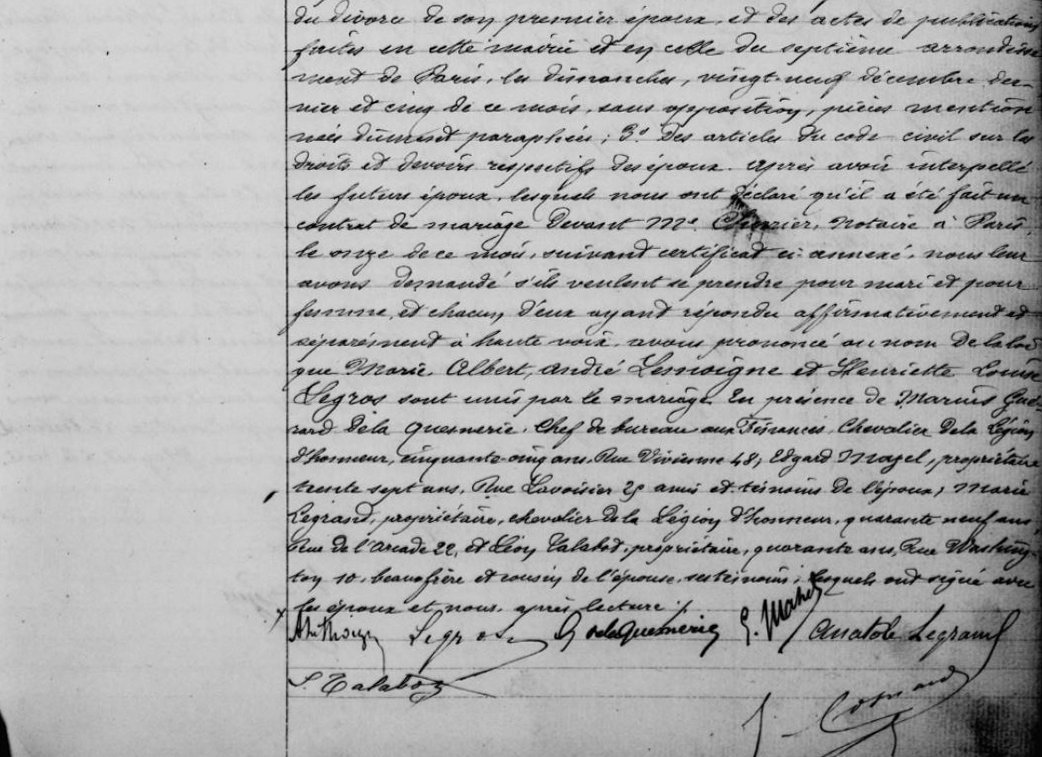 du divorce de son premier époux, et des actes de publications
faites en cette mairie et en celle du septième arrondisse
ment de Paris, les dimanches, vingt-neuf décembre der-
nier et cinq de ce mois, sans opposition, pièces mention
nées dûment paraphées; 3º des articles du code civil sur les
droits et devoirs respectifs des époux. Après avoir interpellé
les futurs époux, lesquels nous ont déclaré qu'il a été fait un
contrat de mariage devant Me notaire à Paris,
le onze de ce mois, suivant certificat ci annexé, nous leur
avons demandé s'ils veulent se prendre pour mari et pour
femme, et chacun d'eux ayant répondu affirmativement et
séparément à haute voix, avons prononcé au nom de la loi
que Marie Albert, André Lemoigne et Henriette Louise
Legros sont unis par le mariage. En présence de Marius Gué-
rard de la Quesnerie, Chef de bureau aux Finances, Chevalier de la Légion
d'honneur, cinquante-cinq ans, Rue Vivienne 48, Edgard propriétaire
trente sept ans, Rue Lavoisier amis et témoins de l'époux; Marie
Legrand, propriétaire, chevalier de la Légion d'honneur, quarante neuf ans,
Rue de l'Arcade 22, et Léon Talabot, propriétaire, quarante ans, Rue Washing-
ton 10, beau-frère et cousin de l'épouse, ses témoins; lesquels ont signé avec
les époux et nous, après lecture ./.
Legros G de la Quesnerie E. Anatole Legrand
L. Talabot